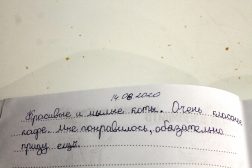 14 08 2020
Красивые и милые коты. Очень классное
кафе. Мне понравилось, обязательно
приду ещё.